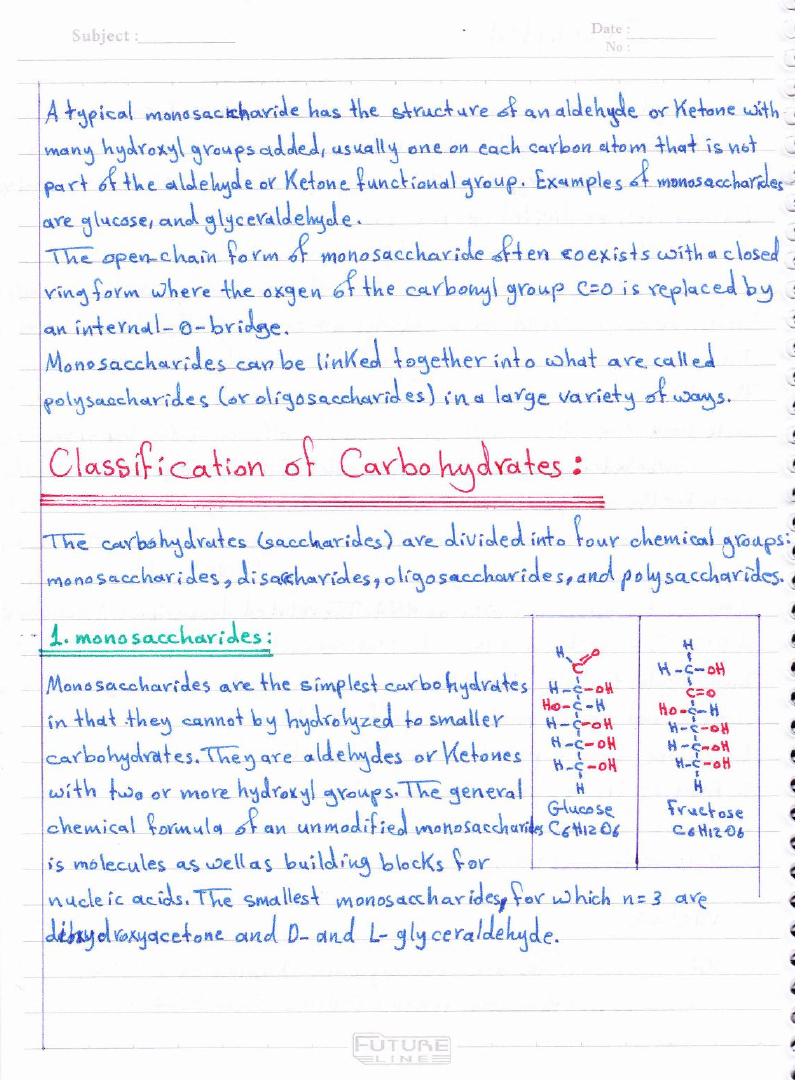 Subject :
Date :
No :
A typical monosaccharide has the structure of an aldehyde or Ketone with
many hydroxyl groups added, usually one on each carbon atom that is not
part of the aldehyde or Ketone functional group. Examples of monosaccharides
are glucose, and glyceraldehyde.
The open-chain form of monosaccharide often coexists with a closed
ring form where the oxgen of the carbonyl group C=O is replaced by
an internal-O-bridge.
Monosaccharides can be linked together into what are called
polysaccharides (or oligosaccharides) in a large variety of ways.
Classification of Carbohydrates:
The carbohydrates (saccharides) are divided into four chemical groups:
monosaccharides, disaccharides, oligosaccharides, and polysaccharides.
1. monosaccharides:
Monosaccharides are the simplest carbohydrates
in that they cannot by hydrolyzed to smaller
carbohydrates. They are aldehydes or Ketones
with two or more hydroxyl groups. The general
chemical formula of an unmodified monosaccharides
is molecules as well as building blocks for
nucleic acids. The smallest monosaccharides, for which n=3 are
dihydroxyacetone and D- and L- glyceraldehyde.
H O
C
H-C-OH
HO-C-H
H-C-OH
H-C-OH
H-C-OH
H
Glucose
C6H12O6
H
H-C-OH
C=O
HO-C-H
H-C-OH
H-C-OH
H-C-OH
H
Fructose
C6H12O6
FUTURE
LINE